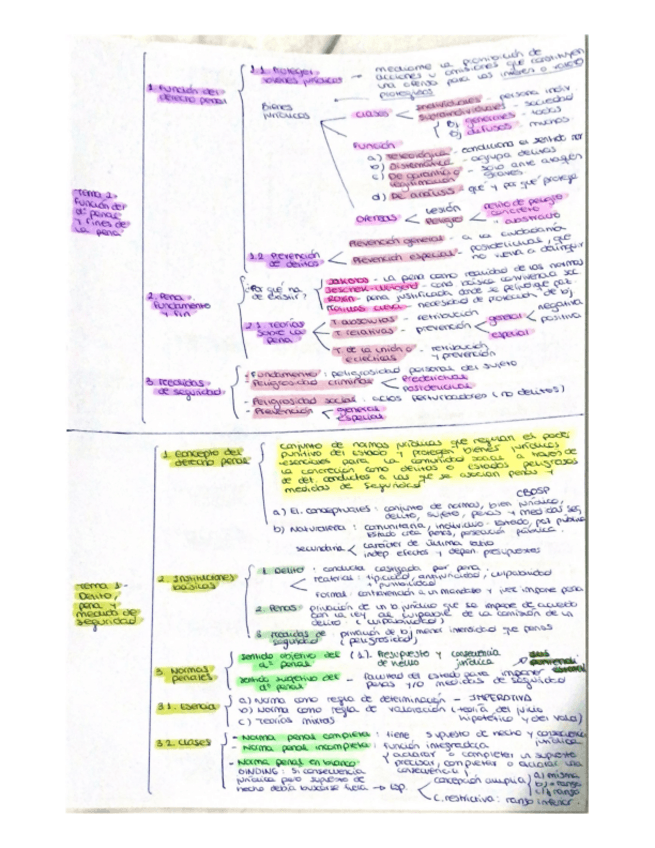 Tema 2. Función del dº penal y fines de la pena
1. Función del derecho penal
1.1. Proteger bienes jurídicos → mediante la prohibición de
acciones u omisiones que constituyen
una ofensa para los
protegidos
Bienes jurídicos
clases < individuales - persona indiv
supraindividuales - sociedad
generales - todos
b) difusos - muchos
Función
a) Teleológica - condiciona el sentido
b) Sistemática - agrupa delitos
c) De garantía o legitimación - solo ante ataques graves
d) De análisis - qué y por qué protege
Ofensas < Lesión
Peligro < delito de peligro concreto
" abstracto
1.2. Prevención de delitos
Prevención general - a la ciudadanía
Prevención especial - posdelictual, que
no vuelva a delinquir
2. Pena. Fundamento y fin
¿Por qué ha de existir?
Jakobs - la pena como realidad de las normas
Jescheck-Weigend - como básica convivencia soc
Roxin - pena justificada,
- necesidad de protección de bj
2.1 Teorías sobre la pena
T. absolutas - retribución
T. relativas - prevención < general < negativa
positiva
especial
T. de la unión o eclécticas - retribución
y prevención
3. Medidas de seguridad
- Fundamento: peligrosidad personal del sujeto
- Peligrosidad criminal < Predelictual
posdelictual
- Peligrosidad social: actos perturbadores (no delitos)
- Prevención < general
especial
Tema 1- Delito, pena y medida de seguridad
1. Concepto del derecho penal
conjunto de normas jurídicas que regulan el poder
punitivo del Estado y protegen bienes jurídicos
esenciales para la comunidad social a través de
la concreción como delitos o estados peligrosos
de det. conductas a las q se asocian penas y
medidas de seguridad
CBDSP
a) El. conceptuales: conjunto de normas, bien jurídico,
delito, sujeto, penas y medidas seg
b) Naturaleza: comunitaria, individuo - Estado, pública
Estado crea penas, potestad pública.
secundaria < carácter de última ratio
indep efectos y depen. presupuestos
2. Instituciones básicas
1. Delito - conducta castigada por pena.
< material: tipicidad, antijuricidad, culpabilidad
+ punibilidad
formal: contravención a un mandato y juez impone pena
2. Penas - privación de un b jurídico que se impone de acuerdo
con la ley al culpable de la comisión de un
delito (culpabilidad)
3. Medidas de seguridad - privación de bj menor intensidad que penas
(peligrosidad)
3. Normas penales
sentido objetivo del dº penal (1). Presupuesto y consecuencia
de hecho jurídica
sentido subjetivo del dº penal - facultad del Estado para imponer
penas y/o medidas de seguridad
3.1. Esencia
a) Norma como regla de determinación - IMPERATIVA
b) Norma como regla de valoración (teoría del juicio
hipotético y del valor)
c) Teorías mixtas
3.2. Clases
- Norma penal completa: tiene supuesto de hecho y consecuencia
jurídica
- Norma penal incompleta: función integradora
aclarar o completar un supuesto
precisar, completar o aclarar una
consecuencia j
- Norma penal en blanco
BINDING: Sí consecuencia
jurídica pero supuesto de
hecho debía buscarse fuera → esp.
< concepción amplia
a) misma
b) + rango
c) rango
C. restrictiva: rango inferior.